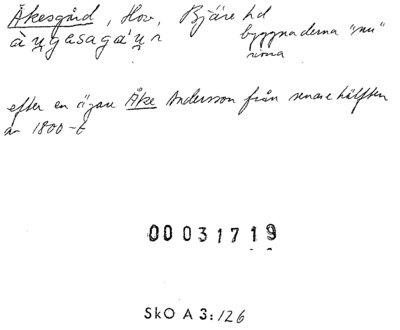 Åkesgård, Hov, Bjäre hd
byggnaderna "nu"
rivna
efter en ägare Åke Andersson från senare hälften
av 1800-t
00031719
SkO A 3:126